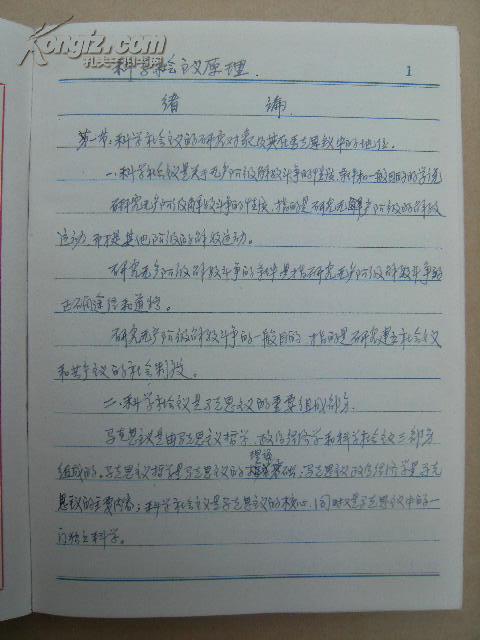 Kongfz.com
孔夫子旧书网
科学社会主义原理. 1
绪 论
第一节:科学社会主义的研究对象及其在马克思主义中的地位.
一.科学社会主义是关于无产阶级解放斗争的性质、条件和一般目的的学说
研究无产阶级解放斗争的性质,指的是研究无产阶级的解放
运动,而不是其他阶级的解放运动。
研究无产阶级解放斗争的条件是指研究无产阶级解放斗争的
正确途径和道路。
研究无产阶级解放斗争的一般目的,指的是研究建立社会主义
和共产主义的社会制度。
二.科学社会主义是马克思主义的重要组成部分.
马克思主义是由马克思主义哲学、政治经济学和科学社会主义三部分
组成的,马克思主义哲学是马克思主义的理论基础;马克思主义政治经济学是马克
思主义的主要内容;科学社会主义是马克思主义的核心,同时又是马克思主义中的一
门独立科学。